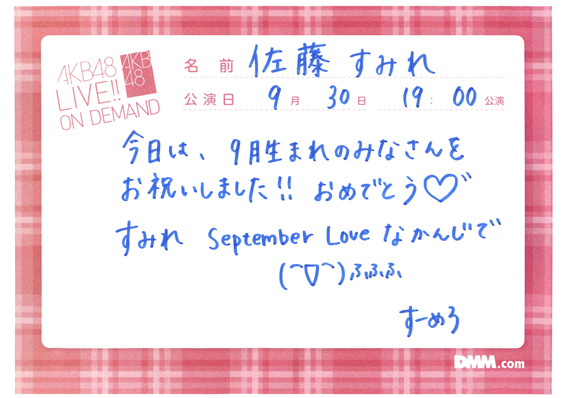 AKB48
LIVE!!
ON DEMAND
AKB
48
名前 佐藤 すみれ
公演日 9月 30日 19:00公演
今日は、9月生まれのみなさんを
お祝いしました!! おめでとう♡
すみれ September Love なかんじで
(⌒▽⌒)ふふふ
すーめろ
DMM.com